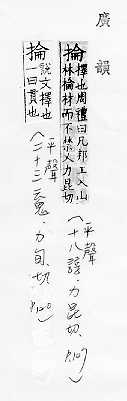 廣韻
掄擇也周禮曰凡邦工入山
林掄材而不禁又力昆切
(平聲十八諄·力昆切·P.109)
掄說文擇也
一曰貫也
(平聲二十三䰟·力旬切·P.120)